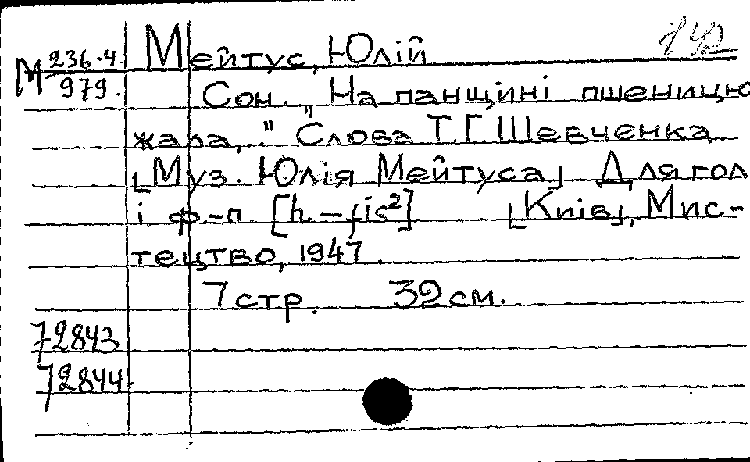 Мейтус, Юлій
М 236.4/979.
Сон. „На панщині пшеницю
жала,“ Слова Т.Г. Шевченка
[Муз. Юлія Мейтуса] Для гол
і ф-п [h-fis²] [Київ], Мис-
тецтво, 1947.
7 стр. 32 см.
72843
72844